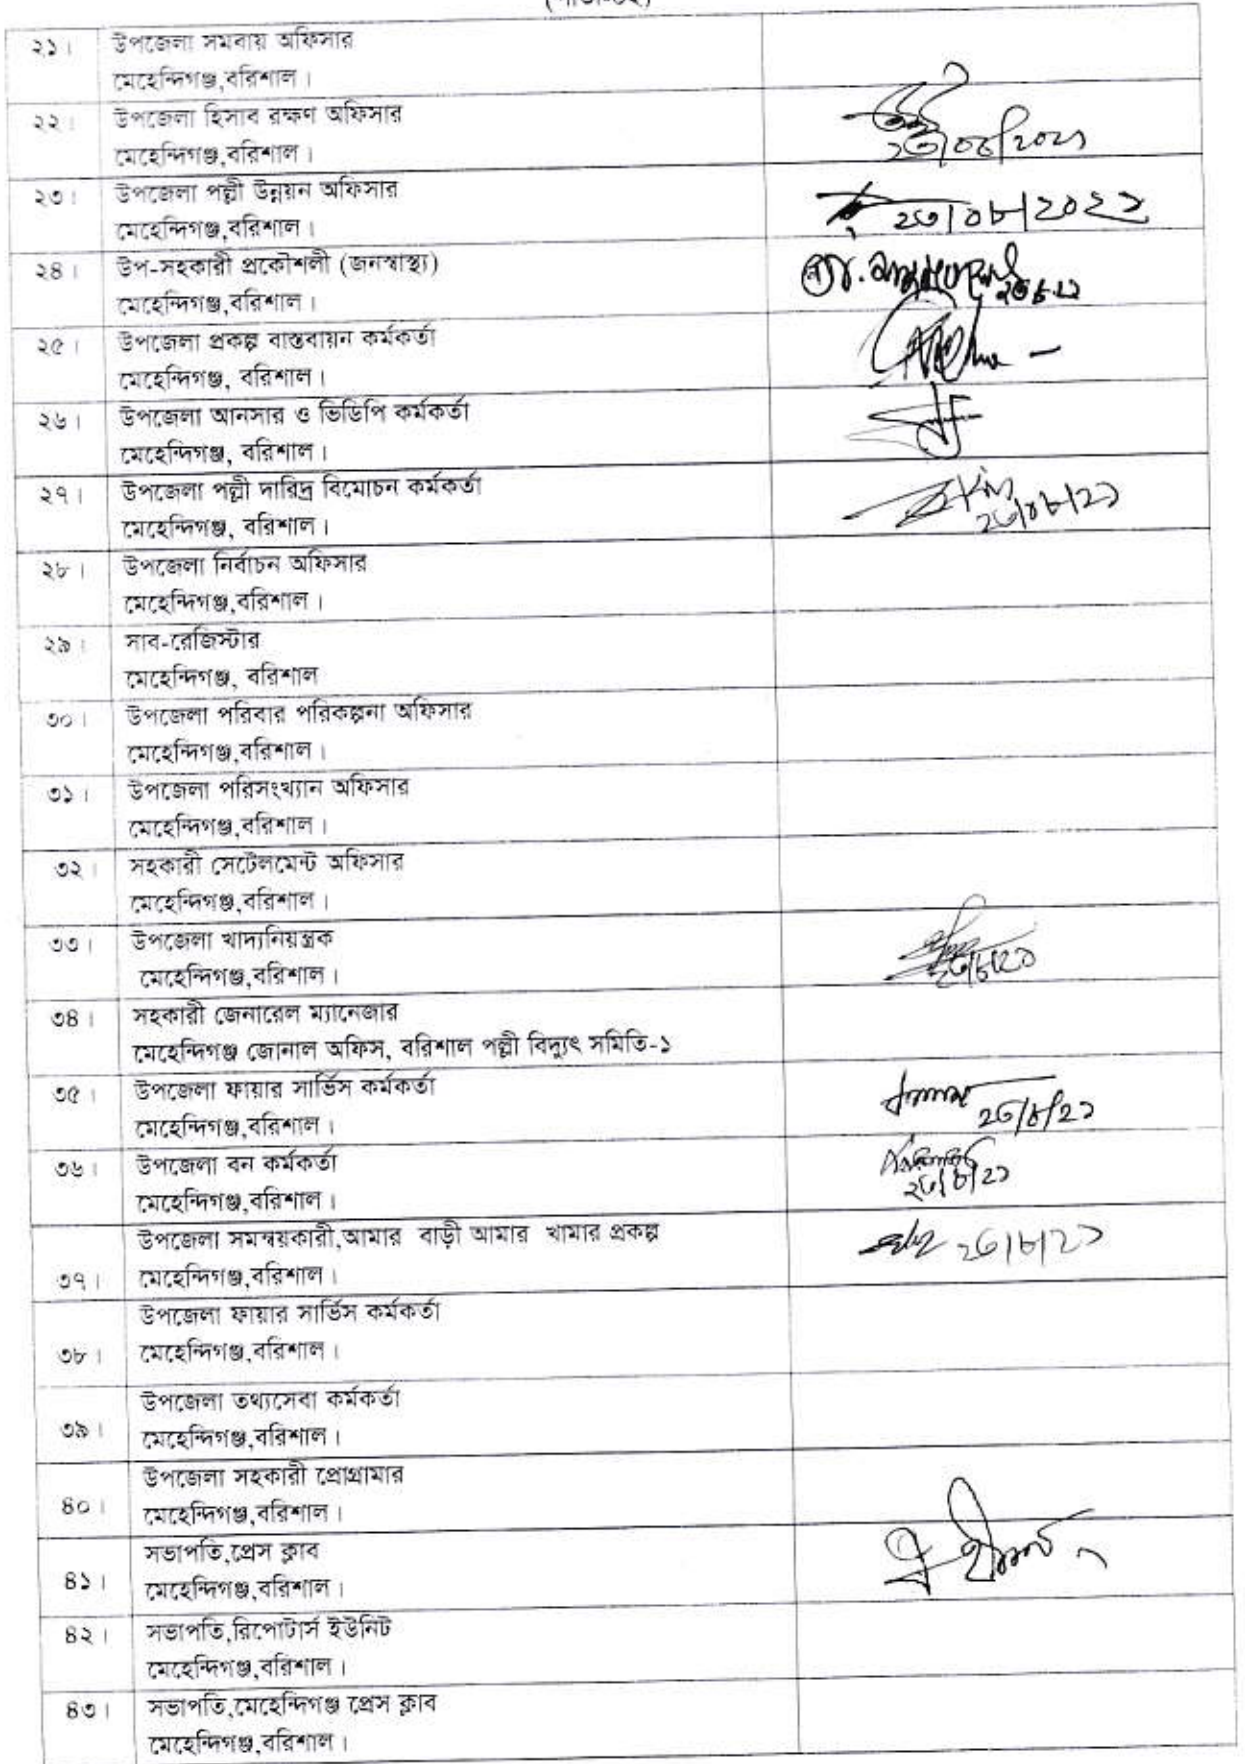 ২১। উপজেলা সমবায় অফিসার
মেহেন্দিগঞ্জ,বরিশাল।
২২। উপজেলা হিসাব রক্ষণ অফিসার
মেহেন্দিগঞ্জ,বরিশাল।
২৩/০৮/২০২১
২৩। উপজেলা পল্লী উন্নয়ন অফিসার
মেহেন্দিগঞ্জ,বরিশাল।
২৩/০৮/২০২১
২৪। উপ-সহকারী প্রকৌশলী (জনস্বাস্থ্য)
মেহেন্দিগঞ্জ,বরিশাল।
২৫। উপজেলা প্রকল্প বাস্তবায়ন কর্মকর্তা
মেহেন্দিগঞ্জ, বরিশাল।
২৬। উপজেলা আনসার ও ভিডিপি কর্মকর্তা
মেহেন্দিগঞ্জ, বরিশাল।
২৭। উপজেলা পল্লী দারিদ্র বিমোচন কর্মকর্তা
মেহেন্দিগঞ্জ, বরিশাল।
২৩/০৮/২১
২৮। উপজেলা নির্বাচন অফিসার
মেহেন্দিগঞ্জ,বরিশাল।
২৯। সাব-রেজিস্টার
মেহেন্দিগঞ্জ, বরিশাল
৩০। উপজেলা পরিবার পরিকল্পনা অফিসার
মেহেন্দিগঞ্জ,বরিশাল।
৩১। উপজেলা পরিসংখ্যান অফিসার
মেহেন্দিগঞ্জ,বরিশাল।
৩২। সহকারী সেটেলমেন্ট অফিসার
মেহেন্দিগঞ্জ,বরিশাল।
৩৩। উপজেলা খাদ্যনিয়ন্ত্রক
মেহেন্দিগঞ্জ,বরিশাল।
২৩/৮/২১
৩৪। সহকারী জেনারেল ম্যানেজার
মেহেন্দিগঞ্জ জোনাল অফিস, বরিশাল পল্লী বিদ্যুৎ সমিতি-১
৩৫। উপজেলা ফায়ার সার্ভিস কর্মকর্তা
মেহেন্দিগঞ্জ,বরিশাল।
২৩/৮/২১
৩৬। উপজেলা বন কর্মকর্তা
মেহেন্দিগঞ্জ,বরিশাল।
২৩/৮/২১
উপজেলা সমন্বয়কারী,আমার বাড়ী আমার খামার প্রকল্প
৩৭। মেহেন্দিগঞ্জ,বরিশাল।
২৩/৮/২১
উপজেলা ফায়ার সার্ভিস কর্মকর্তা
৩৮। মেহেন্দিগঞ্জ,বরিশাল।
উপজেলা তথ্যসেবা কর্মকর্তা
৩৯। মেহেন্দিগঞ্জ,বরিশাল।
উপজেলা সহকারী প্রোগ্রামার
৪০। মেহেন্দিগঞ্জ,বরিশাল।
সভাপতি,প্রেস ক্লাব
৪১। মেহেন্দিগঞ্জ,বরিশাল।
৪২। সভাপতি,রিপোটার্স ইউনিট
মেহেন্দিগঞ্জ,বরিশাল।
৪৩। সভাপতি,মেহেন্দিগঞ্জ প্রেস ক্লাব
মেহেন্দিগঞ্জ,বরিশাল।